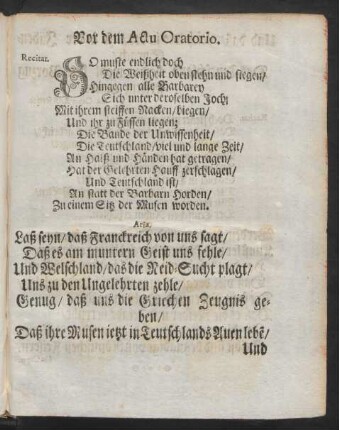 Vor dem Actu Oratorio.
Recitat.
SO muste endlich doch
Die Weißheit oben stehn und siegen/
Hingegen alle Barbarey
Sich unter deroselben Joch/
Mit ihrem steiffen Nacken/biegen/
Und ihr zu Füssen liegen;
Die Bande der Unwissenheit/
Die Teutschland/viel und lange Zeit/
An Halß und Händen hat getragen/
Hat der Gelehrten Hauff zerschlagen/
Und Teutschland ist/
An statt der Barbarn Horden/
Zu einem Sitz der Musen worden.
Aria.
Laß seyn/ daß Franckreich von uns sagt/
Daß es am muntern Geist uns fehle/
Und Welschland/das die Neid-Sucht plagt/
Uns zu den Ungelehrten zehle/
Genug/ daß uns die Griechen Zeugnis ge-
ben/
Daß ihre Musen ietzt in Teutschlands Auen lebē/
Und